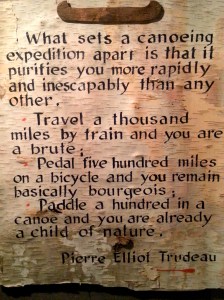 What sets a canoeing
expedition apart is that it
purifies you more rapidly
and inescapably than any
other.
Travel a thousand
miles by train and you are
a brute;
Pedal five hundred miles
on a bicycle and you remain
basically bourgeois;
Paddle a hundred in a
canoe and you are already
a child of nature.
Pierre Elliot Trudeau